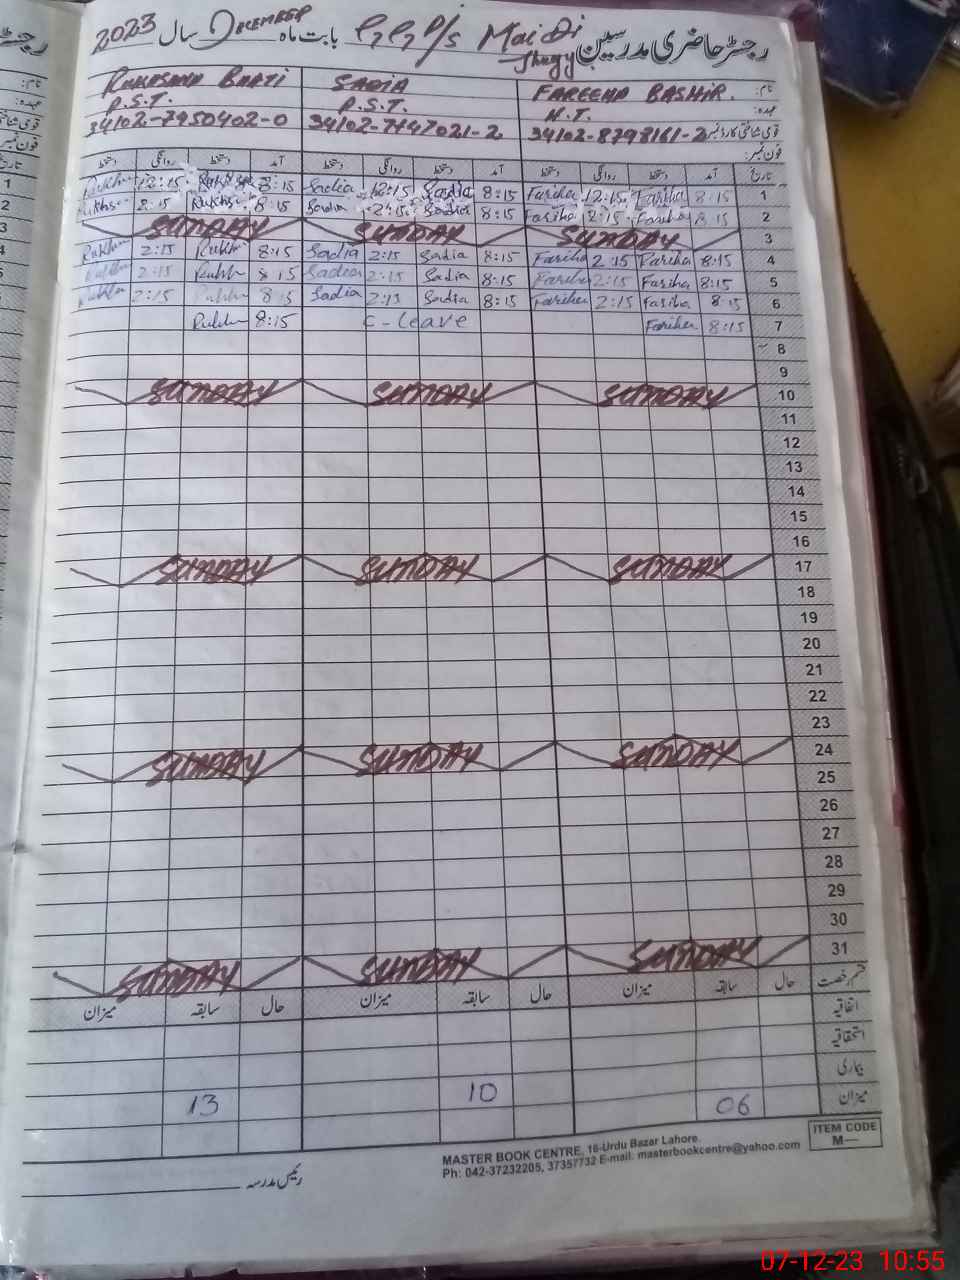 رجسٹر حاضری مدرسین G,G,P/S Mai Di Jhuggi بابت ماہ December سال 2023
نام: FAREEHA BASHIR. SADIA RUKHSANA
عہدہ: H.T. P.S.T. P.S.T.
قومی شناختی کارڈ نمبر 34102-8298161-2 34102-7147021-2 34102-7950402-0
فون نمبر:
تاریخ آمد دستخط روانگی دستخط آمد دستخط روانگی دستخط آمد دستخط روانگی دستخط
1 8:15 Fariha 12:15 Fariha 8:15 Sadia 12:15 Sadia 8:15 Rukhsa 12:15 Rukhs
2 8:15 Fariha 2:15 Fariha 8:15 Sadia 2:15 Sadia 8:15 Rukhs 2:15 Rukhs
3 SUNDAY SUNDAY SUNDAY
4 8:15 Fariha 2:15 Fariha 8:15 Sadia 2:15 Sadia 8:15 Rukh 2:15 Rukh
5 8:15 Fariha 2:15 Fariha 8:15 Sadia 2:15 Sadia 8:15 Rukh 2:15 Rukh
6 8:15 Fariha 2:15 Fariha 8:15 Sadia 2:15 Sadia 8:15 Rukh 2:15 Rukh
7 8:15 Fariha C-Leave 8:15 Rukh
8
9
10 SUNDAY SUNDAY SUNDAY
11
12
13
14
15
16
17 SUNDAY SUNDAY SUNDAY
18
19
20
21
22
23
24 SUNDAY SUNDAY SUNDAY
25
26
27
28
29
30
31 SUNDAY SUNDAY SUNDAY
قسم رخصت حال سابقہ میزان حال سابقہ میزان حال سابقہ میزان
اتفاقیہ
استحقاقیہ
بیماری
میزان 06 10 13
رئیس مدرسہ
MASTER BOOK CENTRE, 16-Urdu Bazar Lahore.
Ph: 042-37232205, 37357732 E-mail: masterbookcentre@yahoo.com
ITEM CODE
M—
07-12-23 10:55